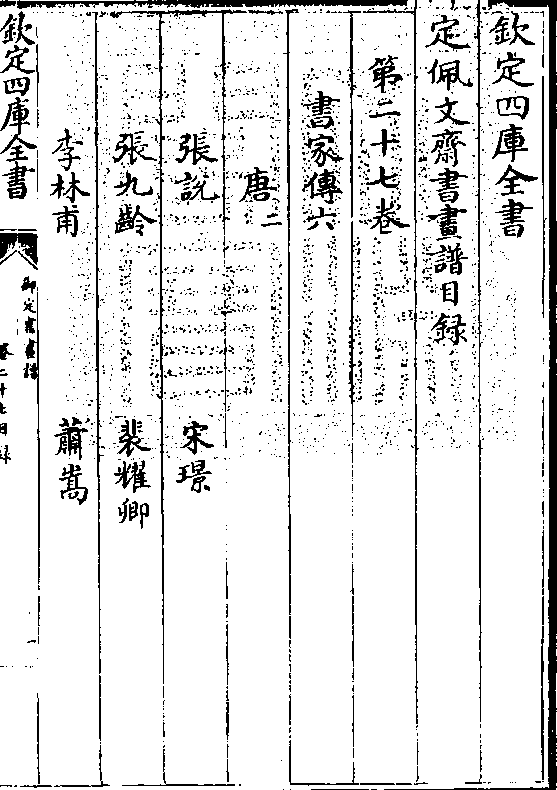 欽定四庫全書
定佩文齋書畫譜目録
第二十七卷
書家傳六
唐二
張說　宋璟
張九齡　裴耀卿
李林甫　蕭嵩
欽定四庫全書
御定書畫譜
卷二十七目録
一